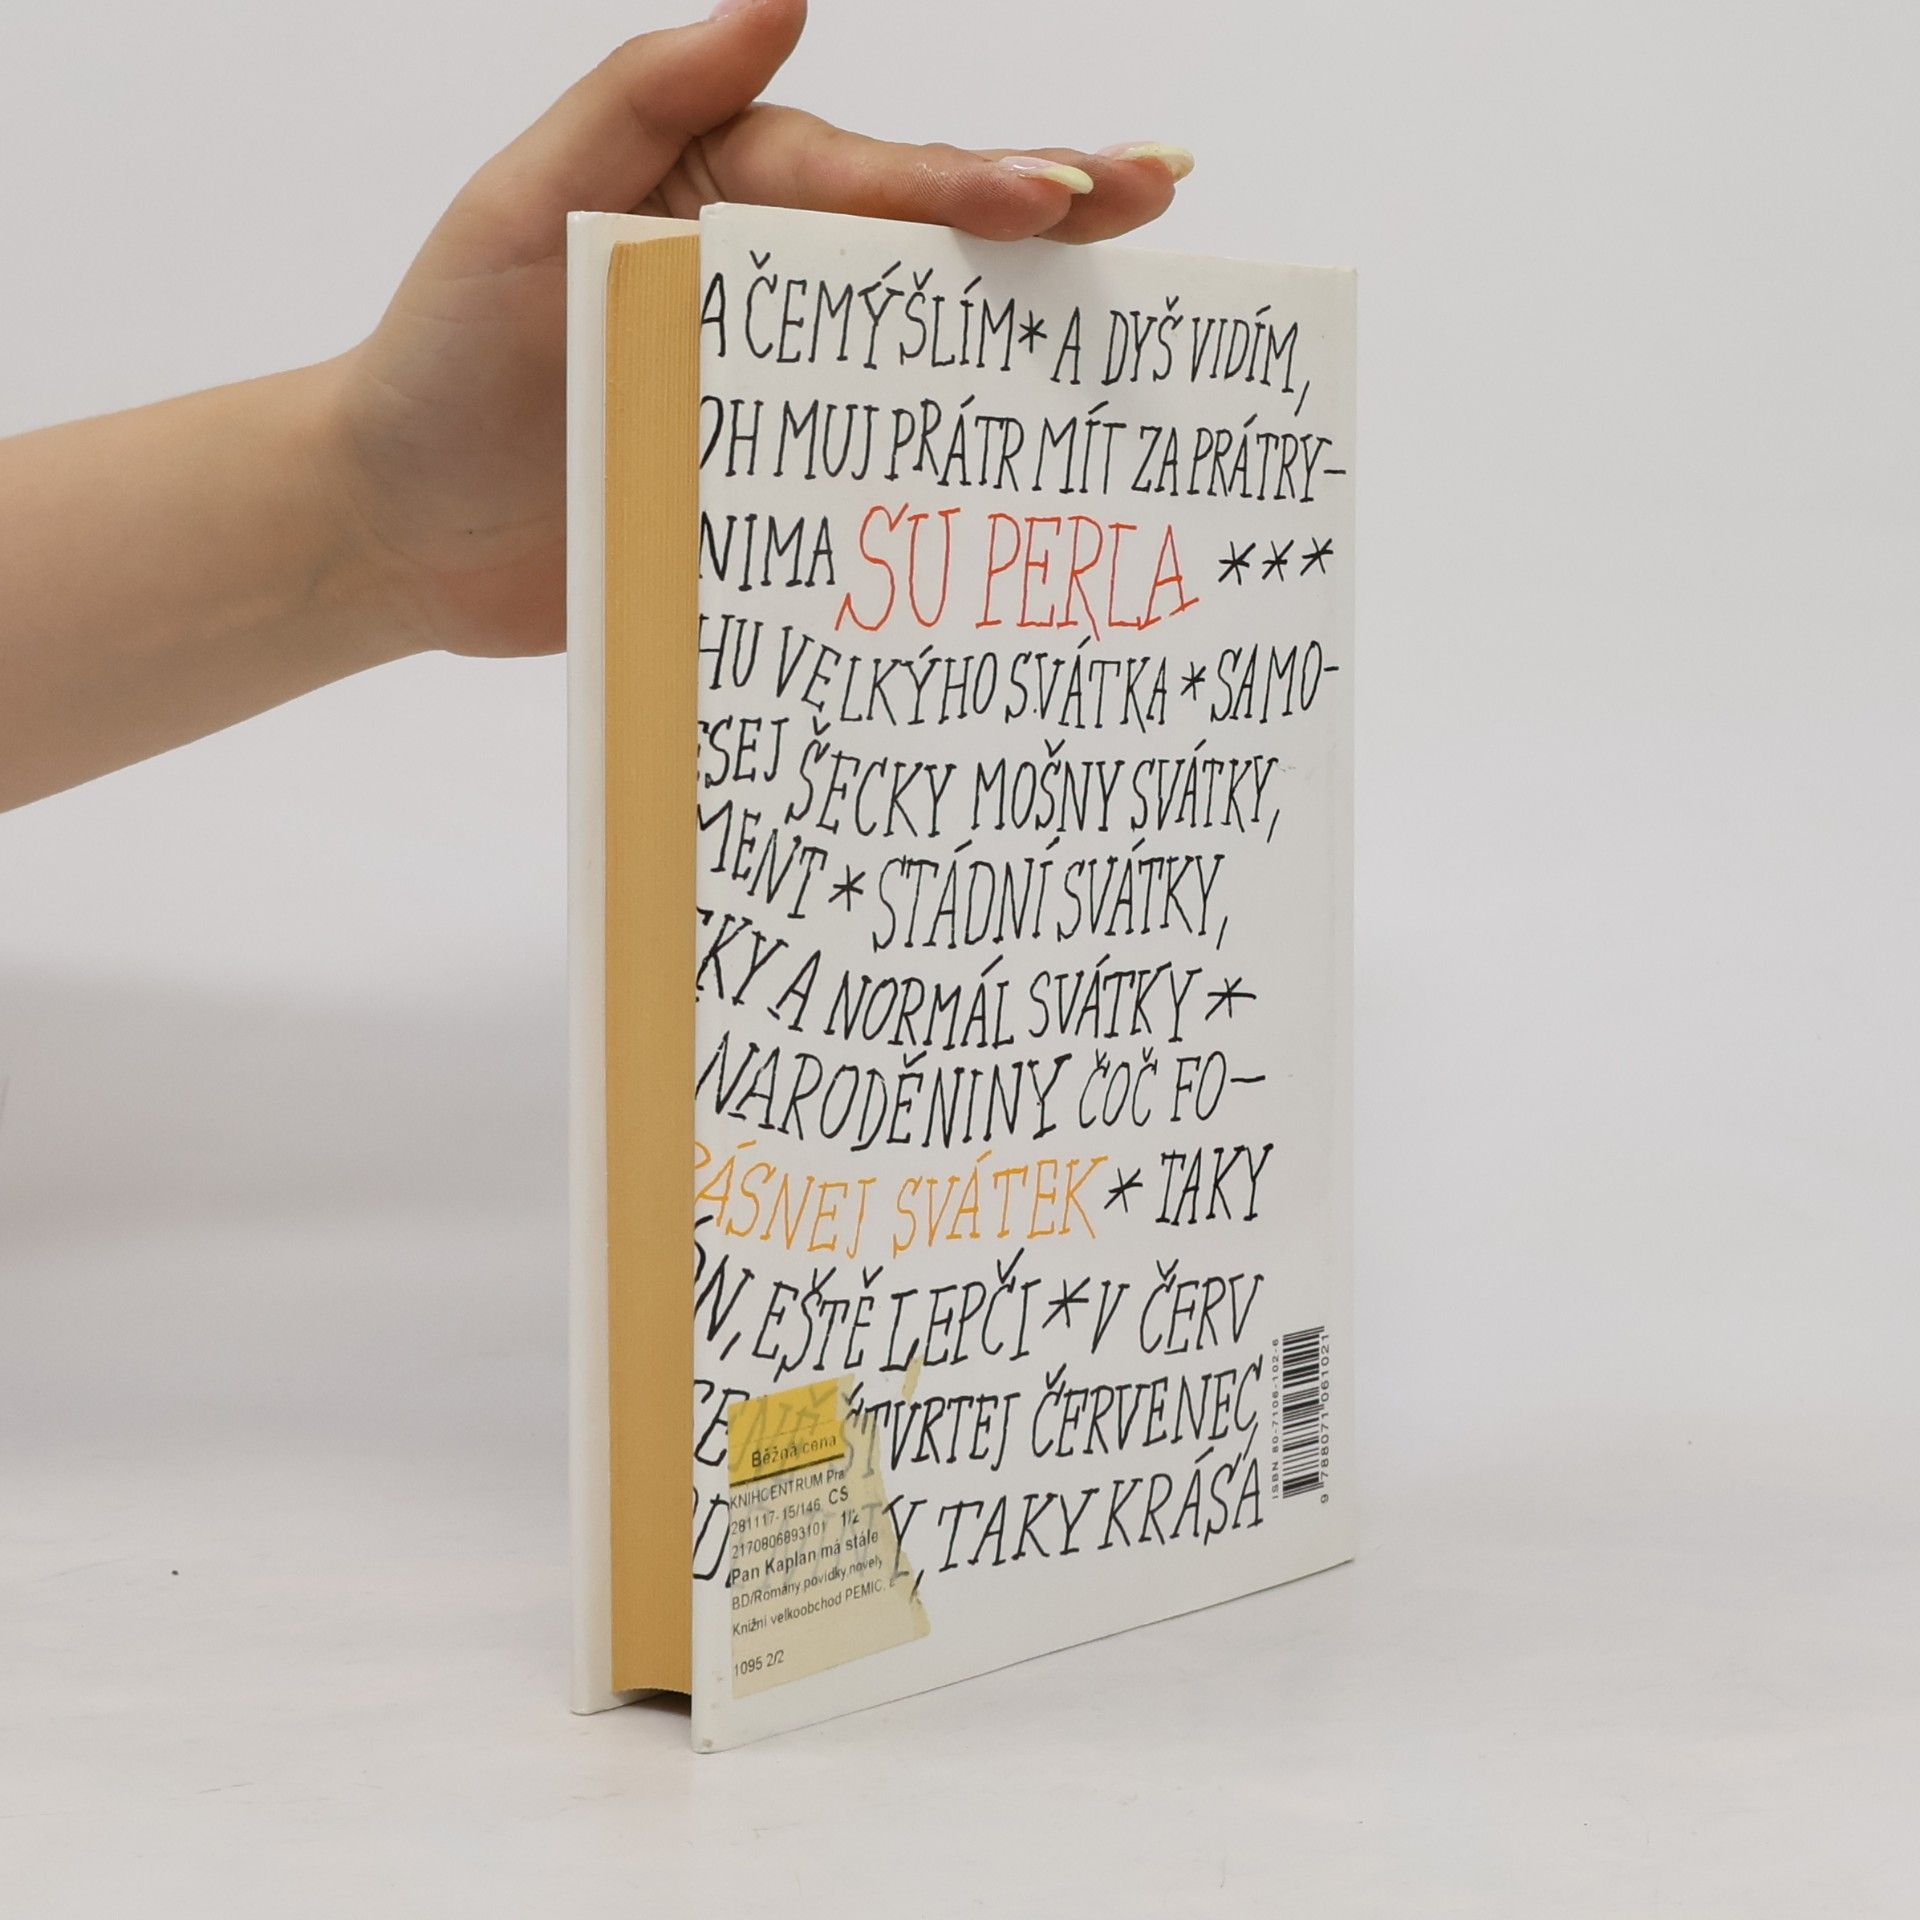 A ČEMÝŠLÍM * A DYŠ VIDÍM,
OH MUJ PRÁTR MÍT ZA PRÁTRY-
NIMA SU PERLA ***
HU VELKÝHO SVÁTKA * SAMO-
ESEJ ŠECKY MOŠNY SVÁTKY,
MENT * STÁDNÍ SVÁTKY,
KY A NORMÁL SVÁTKY *
NARODĚNINY ČOČ FO-
ÁSNEJ SVÁTEK * TAKY
N, EŠTĚ LEPČI * V ČERV
ŠTVRTEJ ČERVENEC
Y, TAKY KRÁSÁ
Běžná cena
KNIHCENTRUM Pra
281117-15/146 CS
2170806893101 1/2
Pan Kaplan má stále
BD/Romány, povídky, novely
Knižní velkoobchod PEMIC,
1095 2/2
ISBN 80-7106-102-6
9 788071 061021